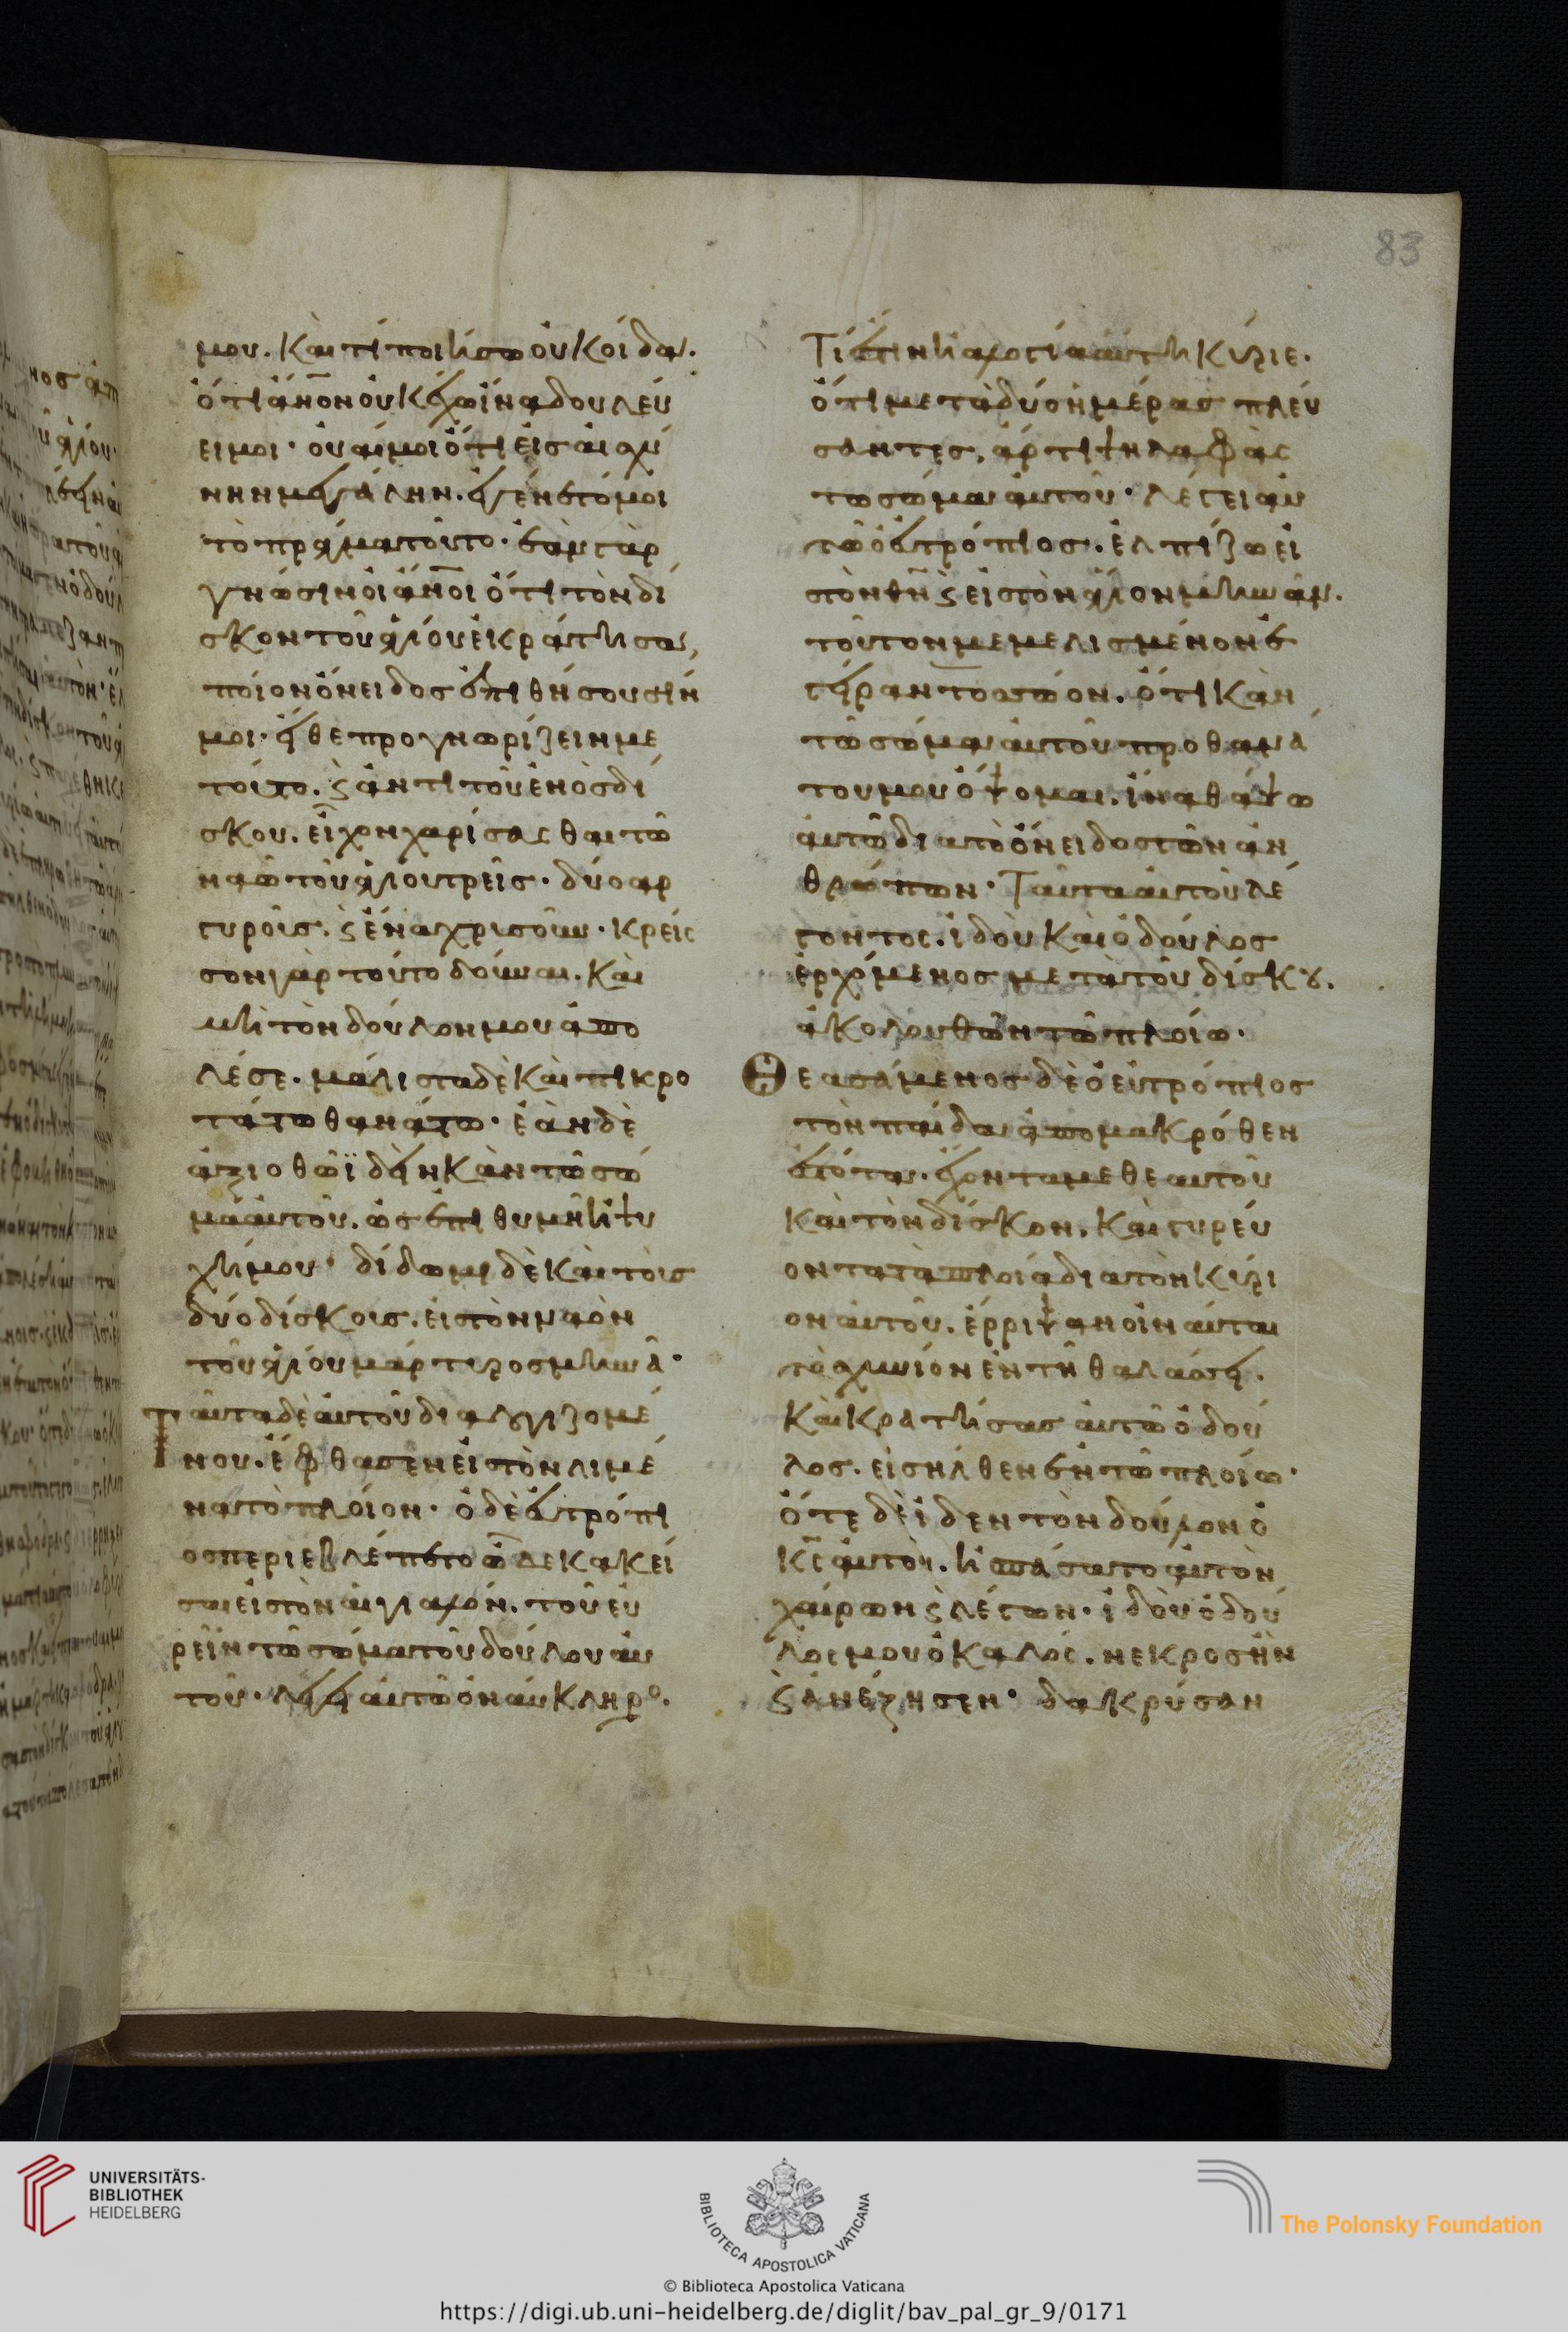 83
μου. Καὶ τί ποιήσω οὐκ οἶδα.
ὅτι ἄν̅ο̅ν οὐκ ἔχω ἵνα δουλεύ
ει μοι· οὐαί μοι ὅτι εἰς αἰσχύ
νην μεγάλην. ἐγένετό μοι
τὸ πρᾶγμα τοῦτο· ἐὰν γὰρ
γνώσιν οἱ ἄν̅ο̅ι ὅτι τὸν δί
σκον τοῦ ἁγίου ἐκράτησα,
ποῖον ὄνειδος ἐπιθήσουσίν
μοι· εἴθε προγνωρίζειν με
τοῦτο. ϛ ἀντὶ τοῦ ἑνὸς δί
σκου. εἶχον χαρίσασθαι τῶ
ναῶ τοῦ ἁγίου τρεῖς· δύο ἀρ
γυροῖς. ϛ ἕνα χρισοῦν· κρεῖσ
σον γὰρ τοῦτο δοῦναι. Καὶ
μὴ τὸν δοῦλον μου ἀπο
λέσε. μάλιστα δὲ καὶ πικρο
τάτω θανάτω· ἐὰν δὲ
ἀξιοθῶ ἰδεῖν κἂν τῶ σῶ
μα αὐτοῦ. ὡς ἐπιθυμῆ ἡ ψυ
χή μου· δίδωμι δὲ καὶ τοῖς
δύο δίσκοις. εἰς τὸν ναὸν
τοῦ ἁγίου μάρτυρος μηνᾶ·
Ταῦτα δὲ αὐτοῦ διαλογιζομέ
νου. ἔφθασεν εἰς τὸν λιμέ
να τὸ πλοῖον· ὁ δὲ εὐτρόπι
ος περιεβλέπετο ὧδε κακεῖ
σαι εἰς τὸν αἰγιαλόν. τοῦ εὑ
ρεῖν τῶ σῶμα τοῦ δούλου αὐ
τοῦ· λέγει αὐτῶ ὁ ναύκληρο.
Τί ἐστιν ἡ ἀργία αὐτη κύριε.
ὅτι μετὰ δύο ἡμέρας πλεύ
σαντες. ἄρτι ψηλαφᾶς
τω σῶμα αὐτοῦ· λέγει αὐ
τῶ ὁ εὐτρόπιος. ἐλπίζω εἰ
στὸν θ̅ν̅ ϛ εἰς τὸν ἅγιον μηνᾶν.
τοῦτον μεμελισμένον ἐ
γείραντο ἀσῶον. ὅτι κἂν
τῶ σῶμα αὐτοῦ πρὸ θανά
του μου ὄψομαι. ἵνα θάψω
αὐτῶ διὰ τὸ ὄνειδος τῶν ἀν
θρώπων· Ταῦτα αὐτοῦ λέ
γοντος. ἰδοὺ καὶ ὁ δοῦλος
ἐρχόμενος μετὰ τοῦ δίσκȣ.
ἀκολουθῶν τῶ πλοίω·
Θεασάμενος δὲ ὁ εὐτρόπιος
τὸν παῖδα ἀπὸ μακρόθεν
ἐστότα. ἔχοντα μεθε αὐτοῦ
καὶ τὸν δίσκον. καὶ γυρεύ
οντα τὰ πλοῖα διὰ τὸν κύρι
ον αὐτοῦ. ἔρριψαν οἱ ναῦται
τὸ σχινίον ἐν τῆ θαλάσση.
Καὶ κρατήσας αὐτῶ ὁ δοῦ
λος. εἰσῆλθεν ἐν τῶ πλοίω·
Ὅτε δὲ ἴδεν τὸν δοῦλον ὁ
κ̅ς̅ αὐτοῦ. ἠσπάσατο αὐτὸν
χαίρων ϛ λέγων· ἰδοὺ ὁ δοῦ
λος μου ὁ καλός. νεκρὸς ἦν
ϛ ἀνέζησεν· δακρύσαν
UNIVERSITÄTS-
BIBLIOTHEK
HEIDELBERG
BIBLIOTECA APOSTOLICA VATICANA
The Polonsky Foundation
© Biblioteca Apostolica Vaticana
https://digi.ub.uni-heidelberg.de/diglit/bav_pal_gr_9/0171